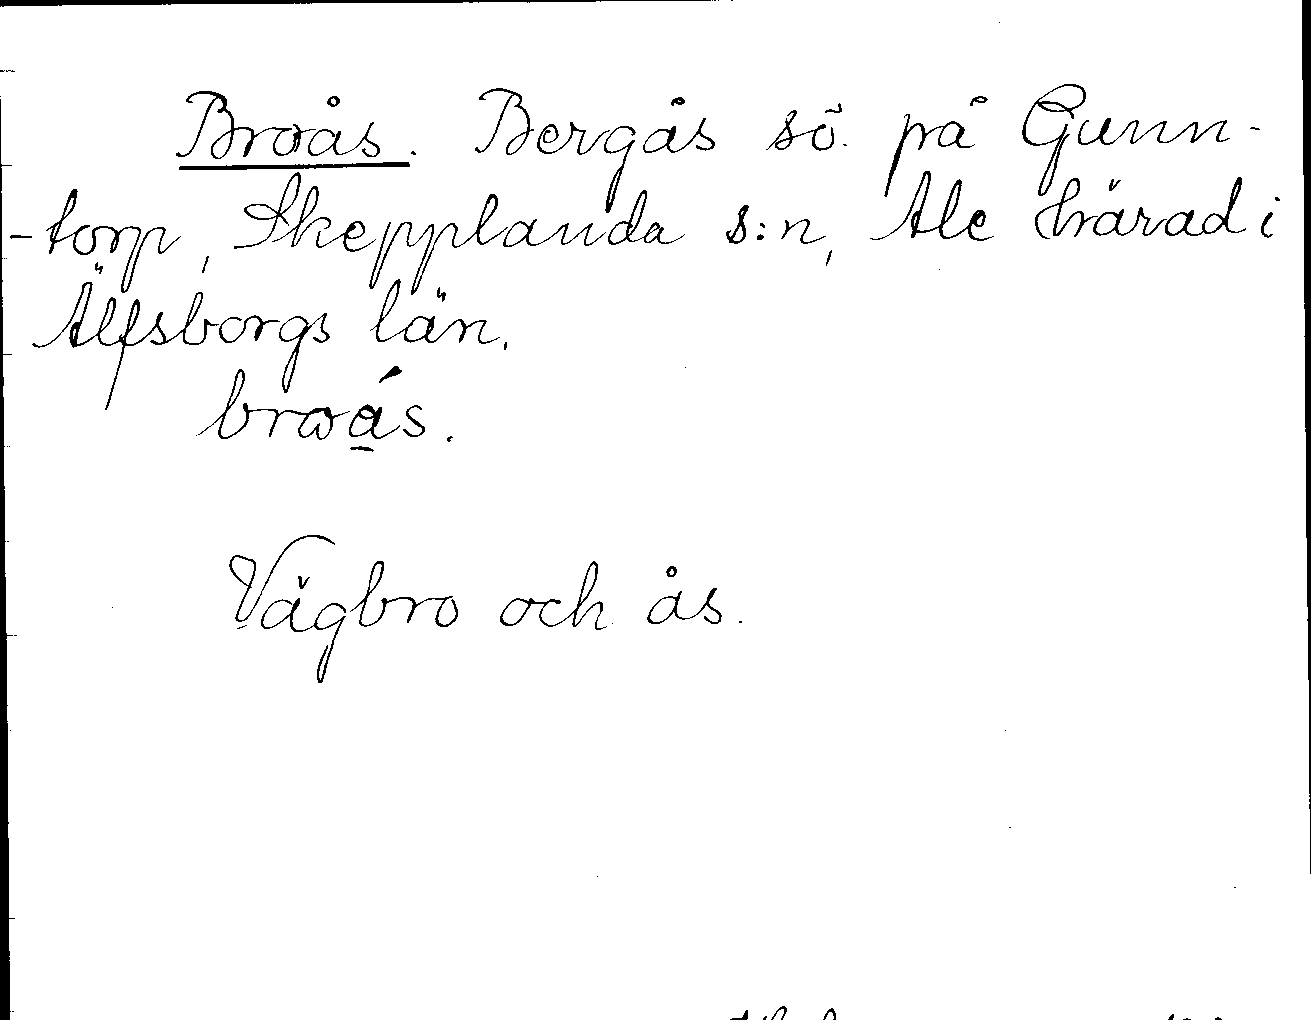 Broås. Bergås sö. på Gunn-
-torp, Skepplanda s:n, Ale härad i
Älfsborgs län.
broás.
Vägbro och ås.